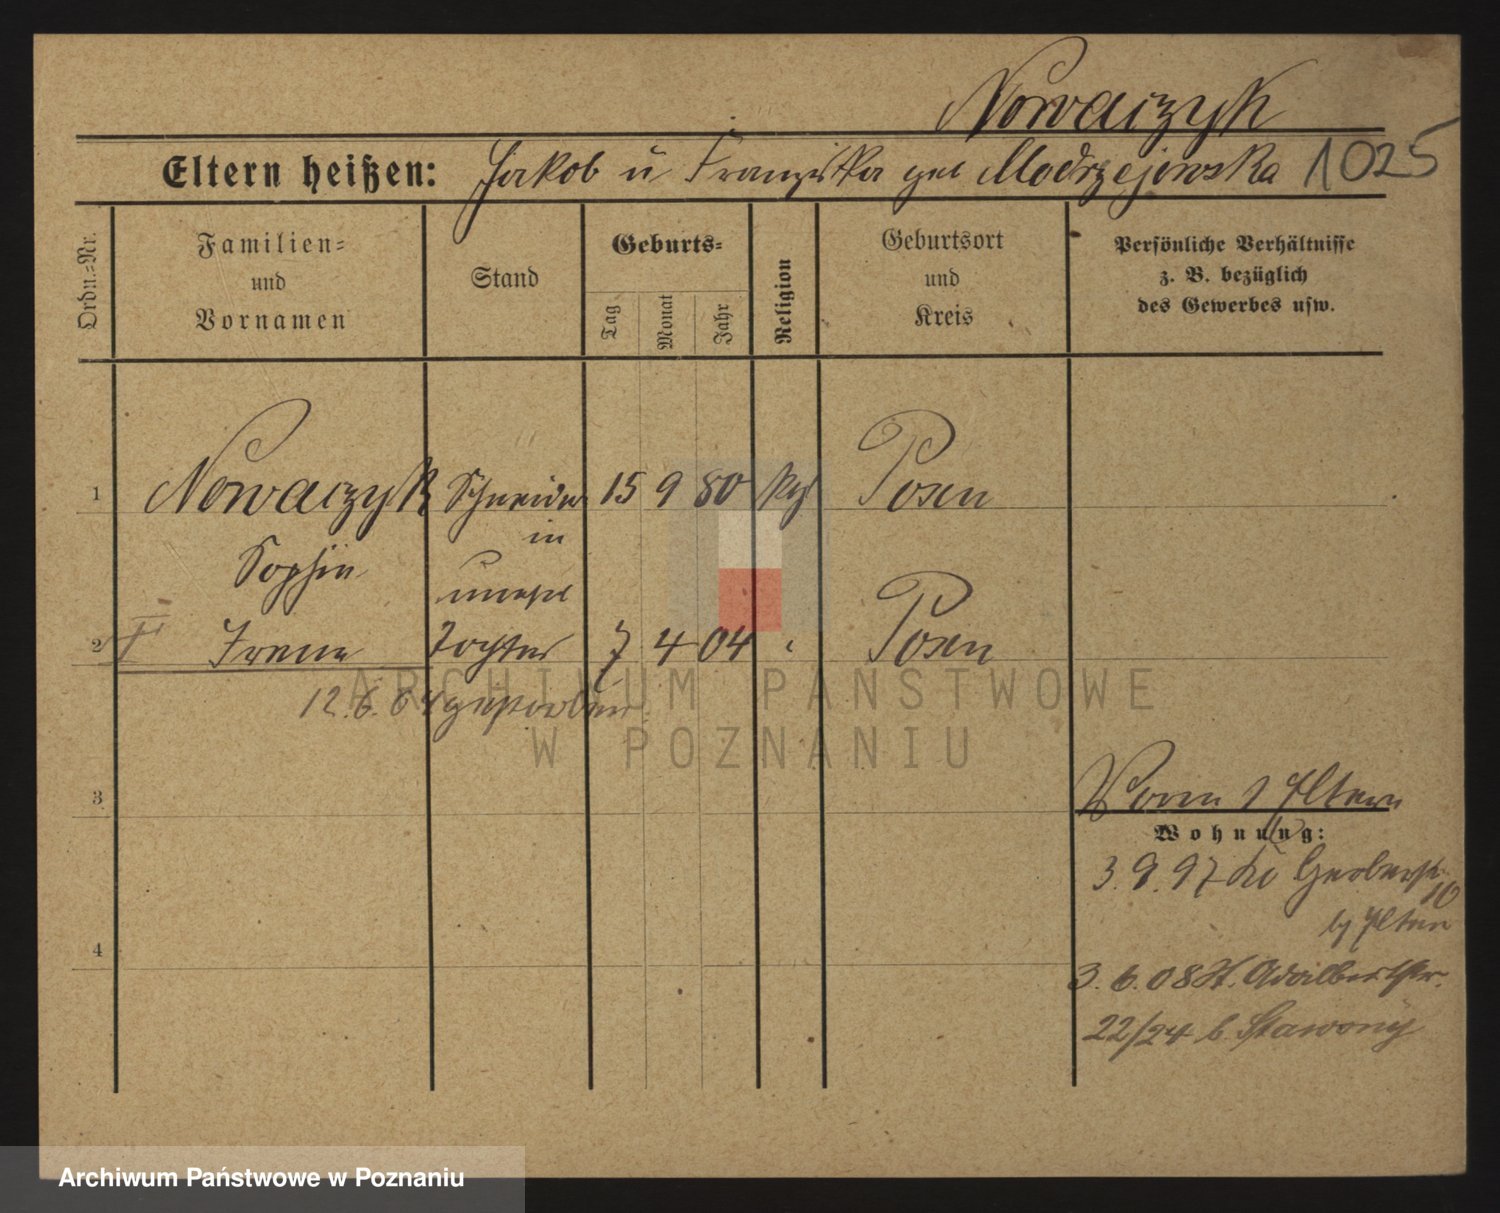 Nowaczyk
Eltern heißen: Jakob u Franziska geb Modrzejewska 1025
Ordn.=Nr.
Familien=
und
Vornamen
Stand
Geburts=
Tag
Monat
Jahr
Religion
Geburtsort
und
Kreis
Persönliche Verhältnisse
z. B. bezüglich
des Gewerbes usw.
1 Nowaczyk Schneider 15 9 80 Posen
in
Sophie unehel
2 Irene Tochter 7 4 04 Posen
12.6.04 gestorben
ARCHIWUM PAŃSTWOWE
W POZNANIU
3
Eltern
Wohnung:
3.9.97 Gerberstr.
10
Eltern
4
3.6.08 St. Adalbertstr.
22/24 b. Stawony
Archiwum Państwowe w Poznaniu